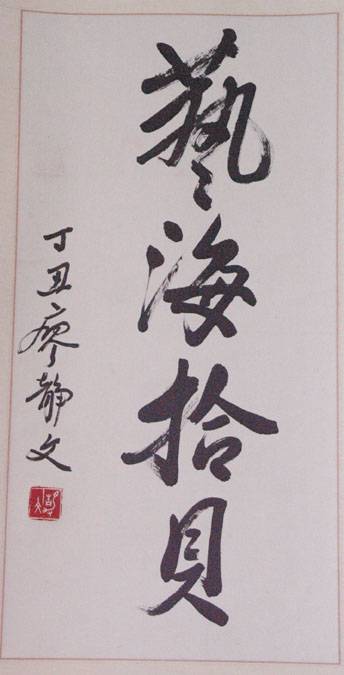 藝海拾貝
丁丑廖靜文